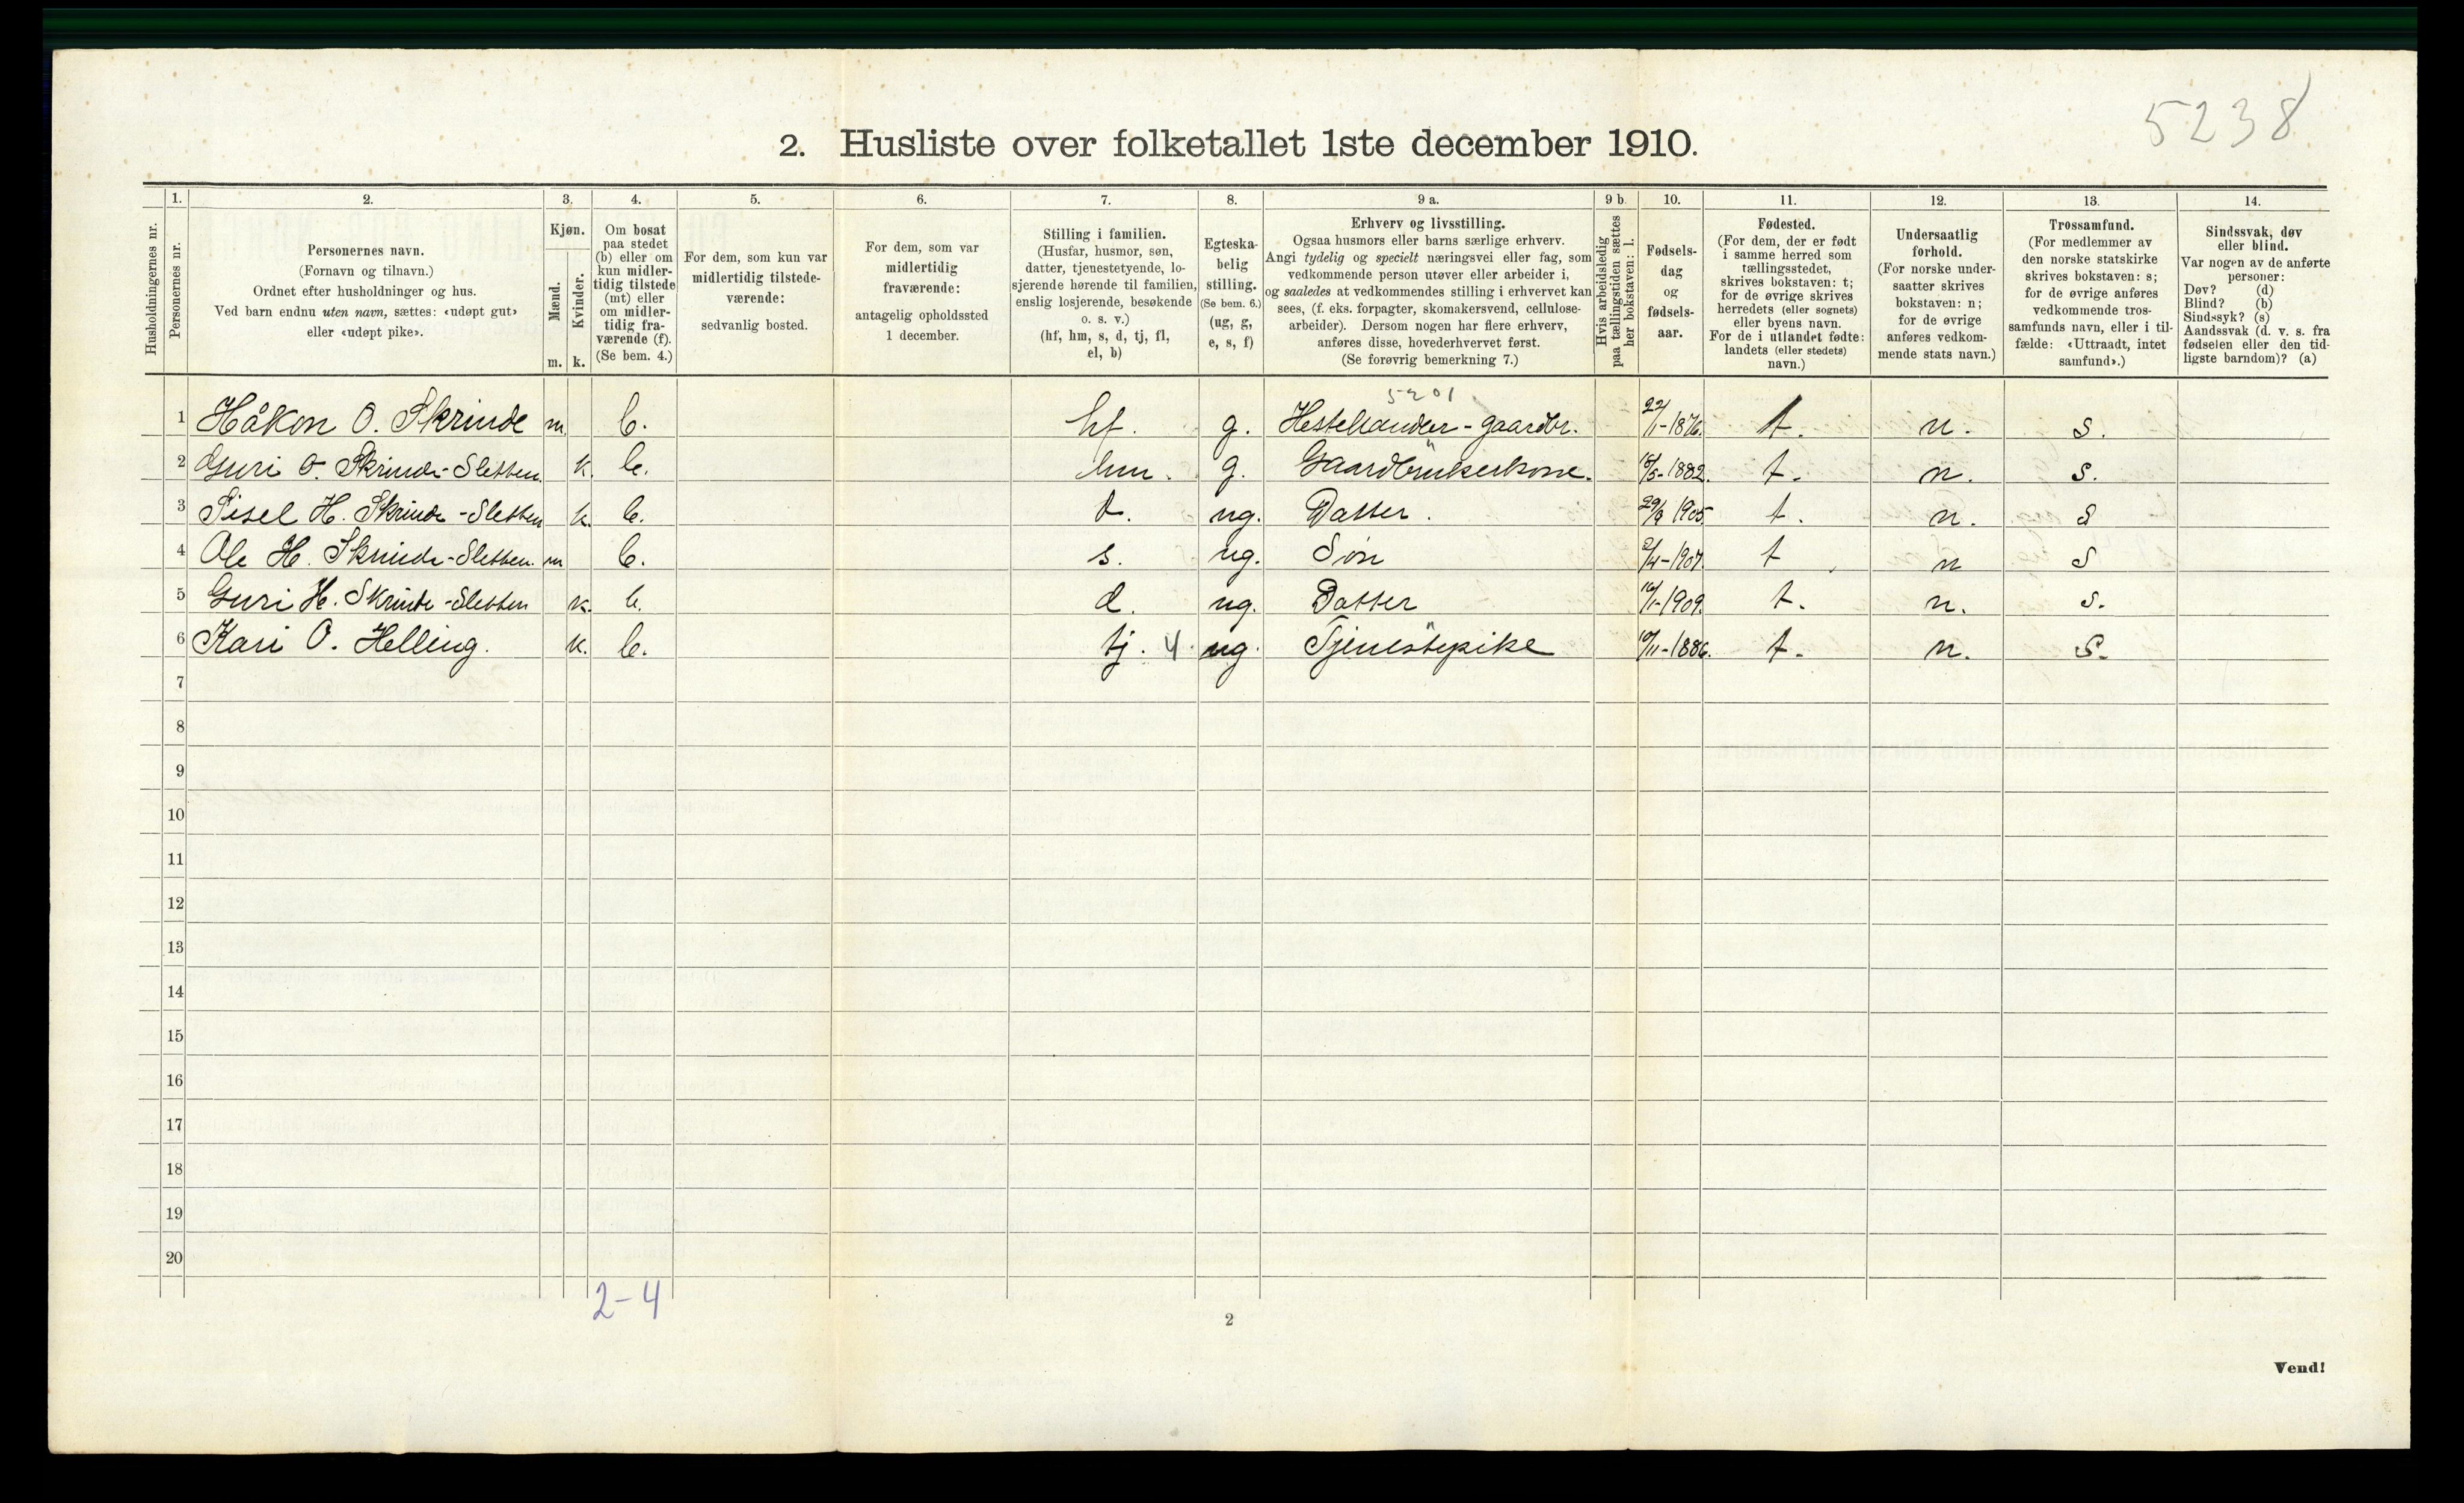 5238
2. Husliste over folketallet 1ste december 1910.
1. 2. 3. 4. 5. 6. 7. 8. 9 a. 9 b. 10. 11. 12. 13. 14.
Husholdningernes nr.
Personernes nr.
Personernes navn.
(Fornavn og tilnavn.)
Ordnet efter husholdninger og hus.
Ved barn endnu uten navn, sættes: «udøpt gut»
eller «udøpt pike».
Kjøn.
Mænd.
m.
Kvinder.
k.
Om bosat
paa stedet
(b) eller om
kun midler-
tidig tilstede
(mt) eller
om midler-
tidig fra-
værende (f).
(Se bem. 4.)
For dem, som kun var
midlertidig tilstede-
værende:
sedvanlig bosted.
For dem, som var
midlertidig
fraværende:
antagelig opholdssted
1 december.
Stilling i familien.
(Husfar, husmor, søn,
datter, tjenestetyende, lo-
sjerende hørende til familien,
enslig losjerende, besøkende
o. s. v.)
(hf, hm, s, d, tj, fl,
el, b)
Egteska-
belig
stilling.
(Se bem. 6.)
(ug, g,
e, s, f)
Erhverv og livsstilling.
Ogsaa husmors eller barns særlige erhverv.
Angi tydelig og specielt næringsvei eller fag, som
vedkommende person utøver eller arbeider i,
og saaledes at vedkommendes stilling i erhvervet kan
sees, (f. eks. forpagter, skomakersvend, cellulose-
arbeider). Dersom nogen har flere erhverv,
anføres disse, hovederhvervet først.
(Se forøvrig bemerkning 7.)
Hvis arbeidsledig
paa tællingstiden sættes
her bokstaven: l.
Fødsels-
dag
og
fødsels-
aar.
Fødested.
(For dem, der er født
i samme herred som
tællingsstedet,
skrives bokstaven: t;
for de øvrige skrives
herredets (eller sognets)
eller byens navn.
For de i utlandet fødte:
landets (eller stedets)
navn.)
Undersaatlig
forhold.
(For norske under-
saatter skrives
bokstaven: n;
for de øvrige
anføres vedkom-
mende stats navn.)
Trossamfund.
(For medlemmer av
den norske statskirke
skrives bokstaven: s;
for de øvrige anføres
vedkommende tros-
samfunds navn, eller i til-
fælde: «Uttraadt, intet
samfund».)
Sindssvak, døv
eller blind.
Var nogen av de anførte
personer:
Døv? (d)
Blind? (b)
Sindssyk? (s)
Aandssvak (d. v. s. fra
fødselen eller den tid-
ligste barndom)? (a)
5201
1 Håkon O. Skrinde m. b. hf. g. Hestehandler - gaardbr. 22/1-1876. t. n. s.
2 Guri O. Skrinde-Sletten k. b. hm. g. Gaardbrukerkone. /5-1882. t. n. s.
3 Sisel H. Skrinde-Sletten k. b. d. ug. Datter. 29/9 1905 t. n. s
4 Ole H. Skrinde-Sletten. m b. s. ug. Søn 2/4-1907. t n s
5 Guri H. Skrinde-Sletten k. b. d. ug. Datter 16/1-1909. t. n. s.
6 Kari O. Helling. k. b. tj. 4. ug. Tjenestepike 10/11-1886. t. n. s.
7
8
9
10
11
12
13
14
15
16
17
18
19
20
2-4
2
Vend!